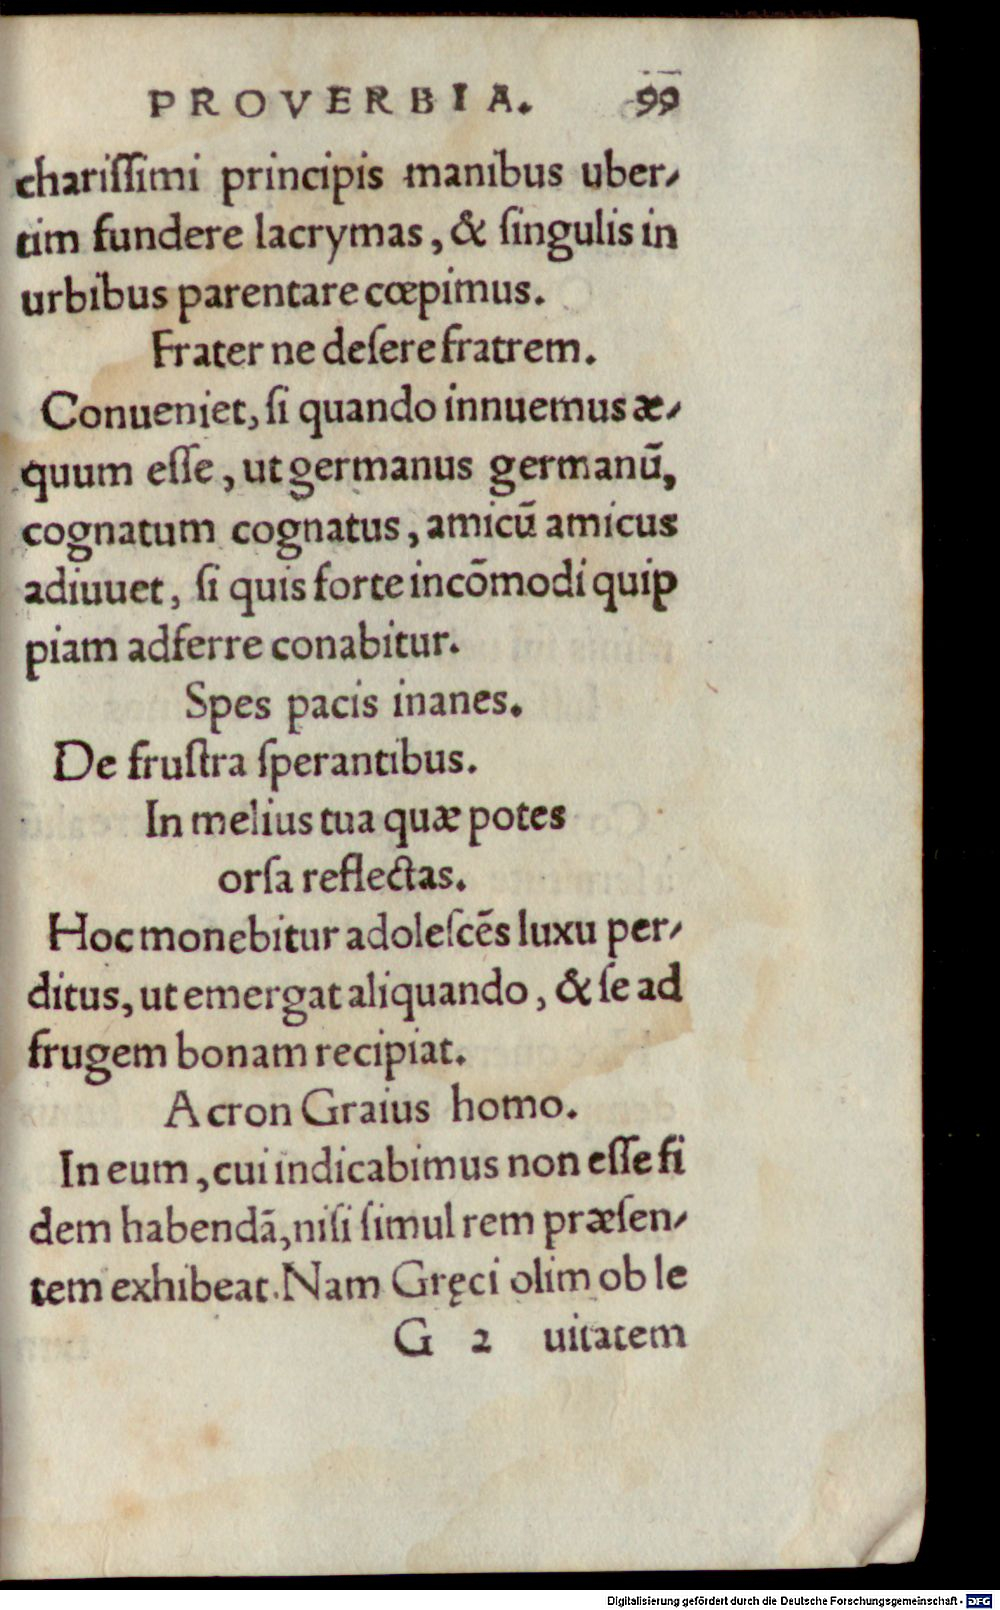 PROVERBIA. 99
chariſſimi principis manibus uber-
tim fundere lacrymas, & ſingulis in
urbibus parentare cœpimus.
Frater ne deſere fratrem.
Conueniet, ſi quando innuemus æ-
quum eſſe, ut germanus germanū,
cognatum cognatus, amicū amicus
adiuuet, ſi quis forte incōmodi quip
piam adferre conabitur.
Spes pacis inanes.
De fruſtra ſperantibus.
In melius tua quæ potes
orſa reflectas.
Hoc monebitur adoleſcēs luxu per-
ditus, ut emergat aliquando, & ſe ad
frugem bonam recipiat.
Acron Graius homo.
In eum, cui indicabimus non eſſe fi
dem habendā, niſi ſimul rem præſen-
tem exhibeat. Nam Gręci olim ob le
G 2 uitatem
Digitalisierung gefördert durch die Deutsche Forschungsgemeinschaft - DFG